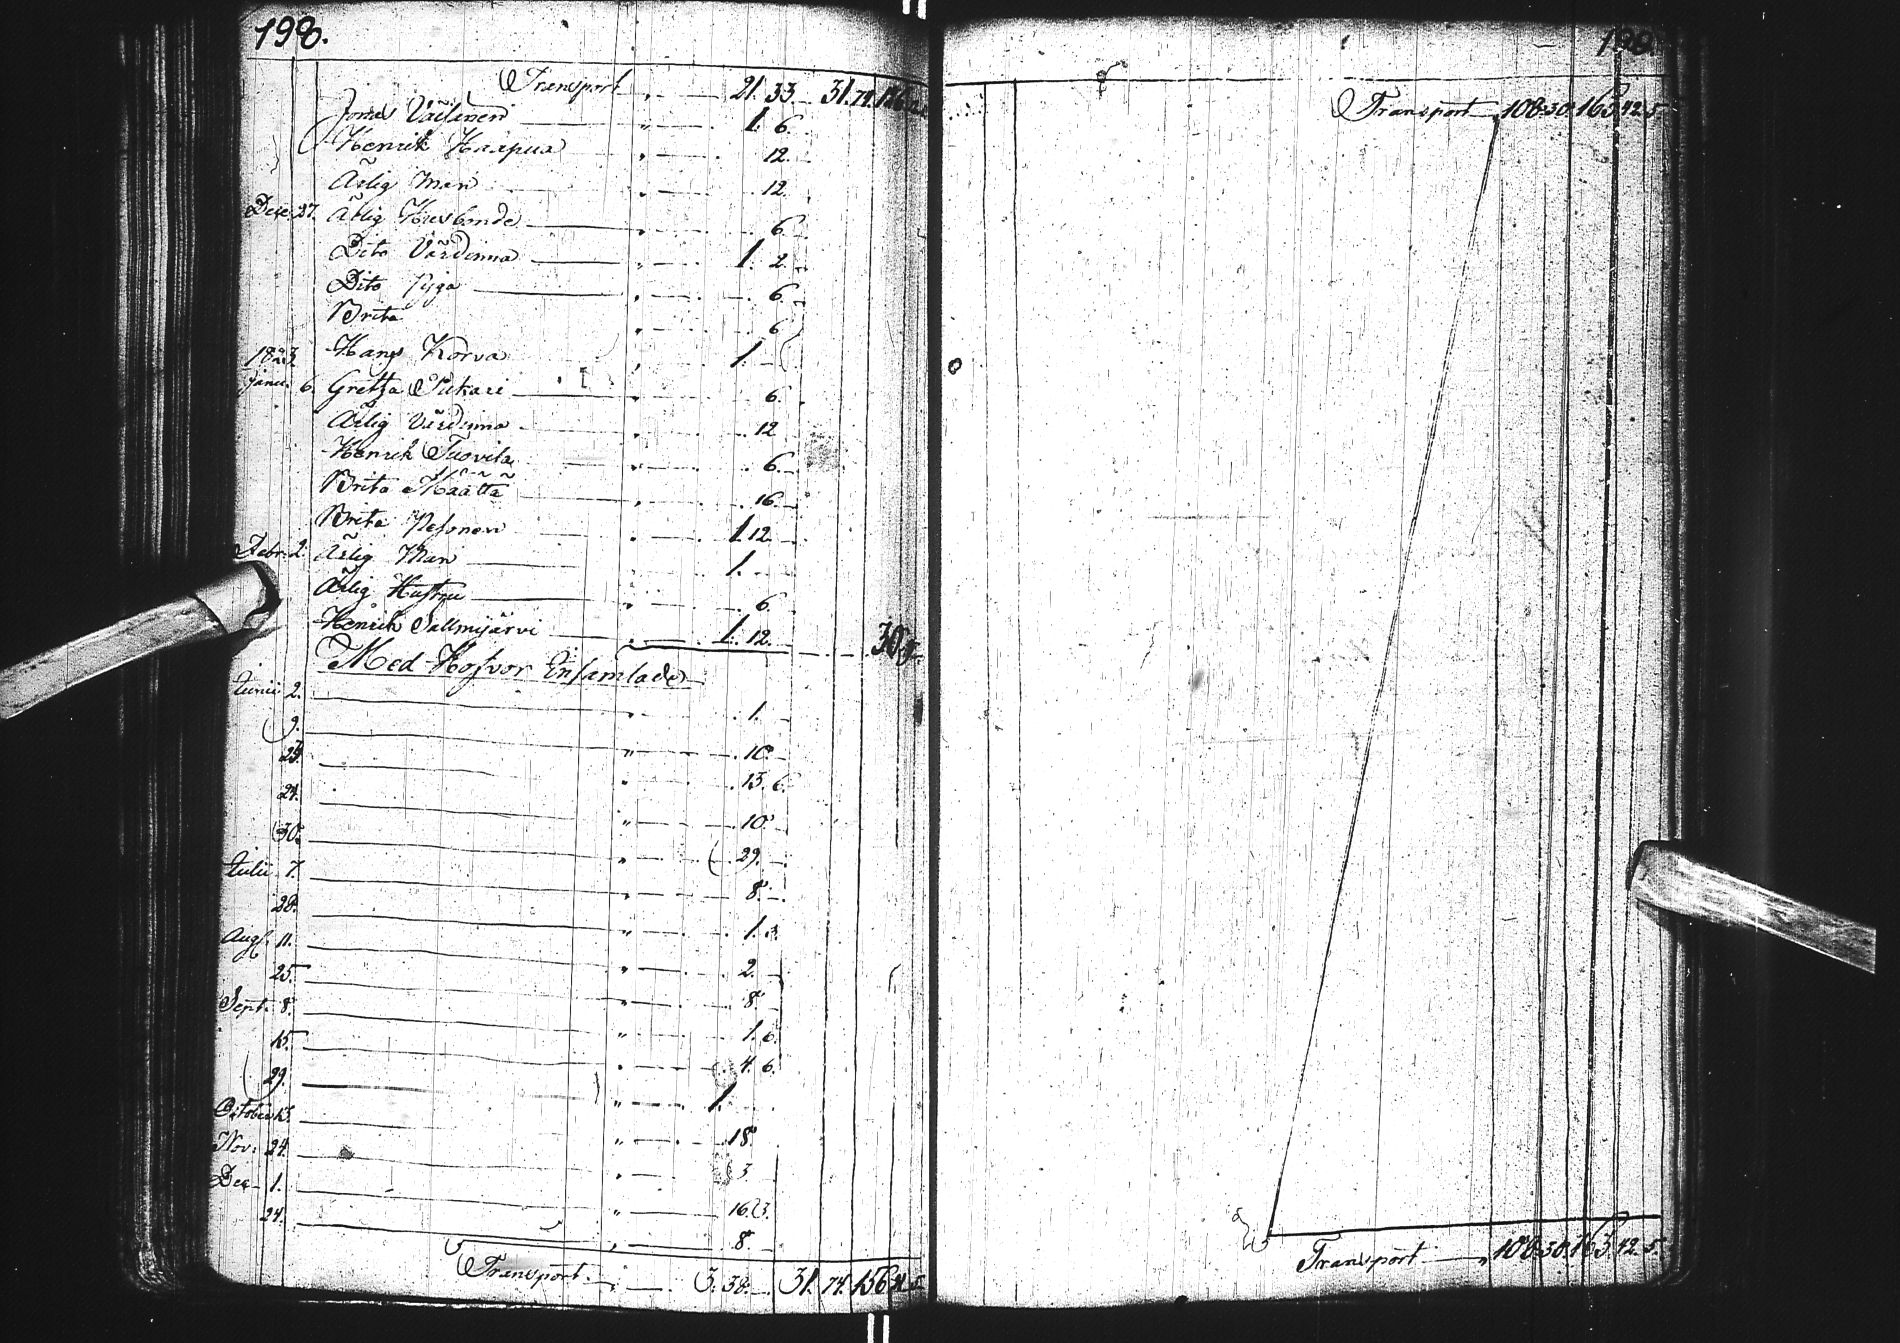 198.
Transport 21. 33. 31. 74.
Jonas Väisänen 1. 6.
Henrik Haapua 12.
Ärlig Man 12.
Dec. 27. Ärlig Husbonde 6
Dito Värdinna 1. 2.
Dito Piga 6.
Brita 6
1823 Hans Korva 1.
Janu. 6. Gretha Pukari 6.
Ärlig Värdinna 12
Henrik Tuovila 6.
Brita Määttä 16.
Brita Pesonen 1 12.
Febr. 2. Ärlig Man 1.
Ärlig Hustru 6
Henrik Sallmijärvi 1. 12. 30
Med Hofvor Insamlade
Junii 2. 1.
9. 10.
23. 13. 6.
24. 10.
30. 29.
Julii 7. 8.
28. 1. 3.
Aug. 11. 2.
25. 8.
Sept. 8. 1. 6.
15. 4. 6.
29. 1.
October 18.
Nov. 24. 3
Dec. 1. 16. 3.
24. 8.
Transport 3. 38. 31. 74. 156
Transport 108. 30. 163. 42. 5
Transport 108. 30. 163. 42. 5.